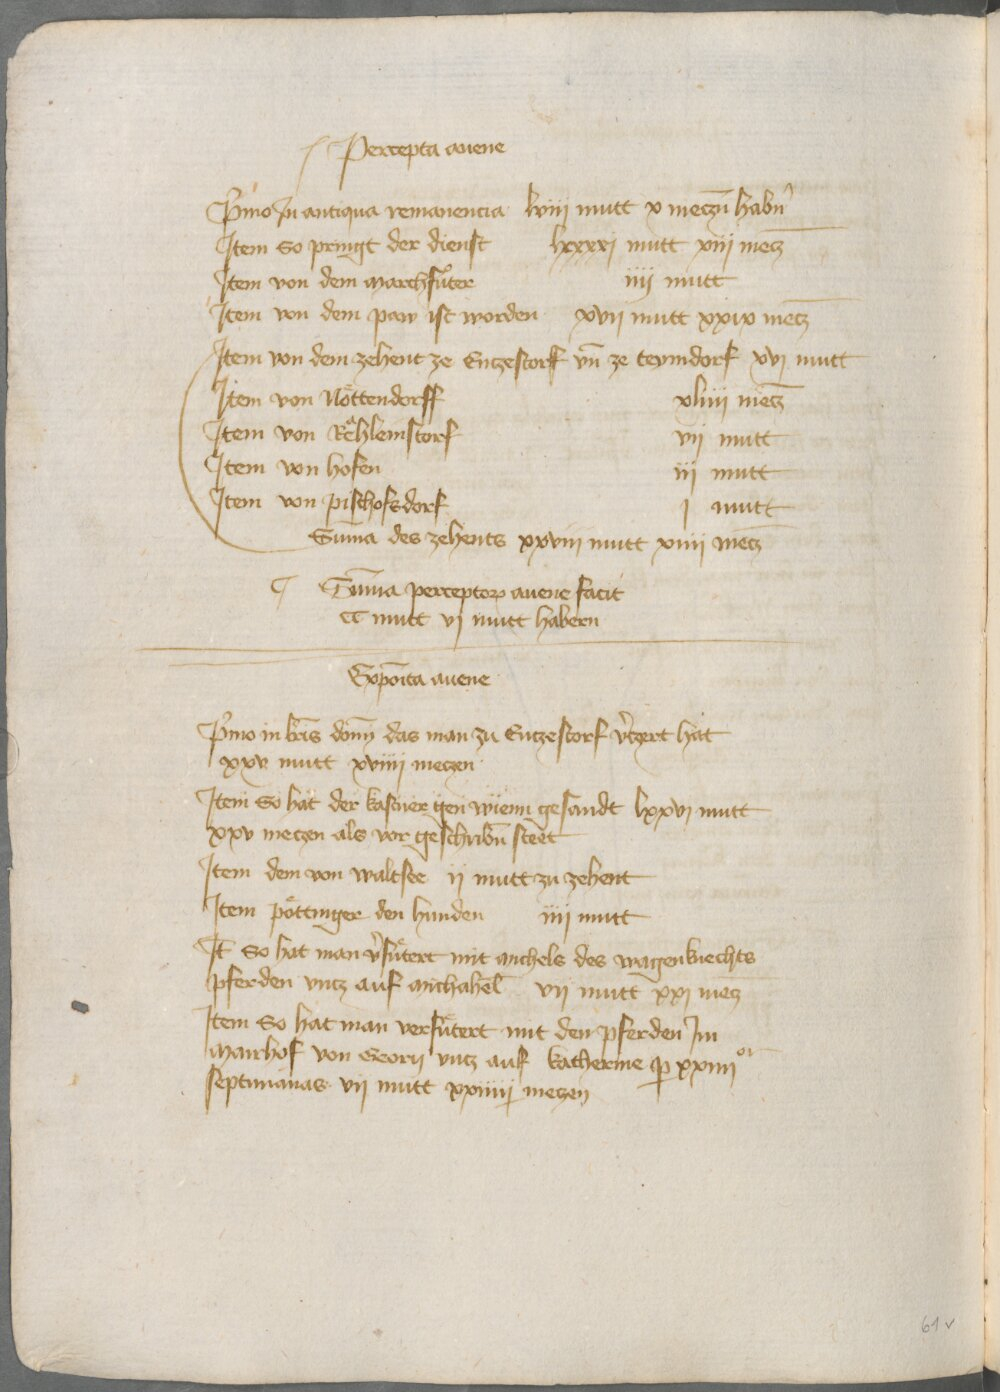 Percepta auene
P͛mo In antiqua remanencia lviii mutt x meczn̄ habn̄
Item So pringt der dienst lxxxxi mutt xiii mecz̄
Item von dem marchfůter iiii mutt
Item von dem paw ist worden xvii mutt xxix mecz̄
Item von dem zehent ze Enczestorf vn̄ ze teymdorf xvi mutt
Item von Nöttendorff xliiii mecz̄
Item von Rähleinstorf vii mutt
Item von hofen iii mutt
Item von pischofsdorf i mutt
Sum̄a des zehents xxviii mutt xiiii mecz
Sum̄a perceptoꝝ auene facit
CC mutt vi mutt habern
Expōita auene
P͛mo in br̄is dōnj das man zu Enczestorf v͛czert hat
xxv mutt xviiii meczen
Item So hat der kastner gen wienn gesandt lxxvi mutt
xxv meczen als vor geschribn̄ steet
Item dem von waltsee ii mutt zu zehent
Item pöttinger den hunden iiii mutt
It̄ So hat man v͛fůtert mit michels des wagenknechts
pferden vncz auf michahel̄ vii mutt xxi mecz̄
Item So hat man verfůtert mit den pferden Im
mairhof von Georii vncz auf katherine ꝑ xxiiii or
septimanas vii mutt xxiiii meczen
61v